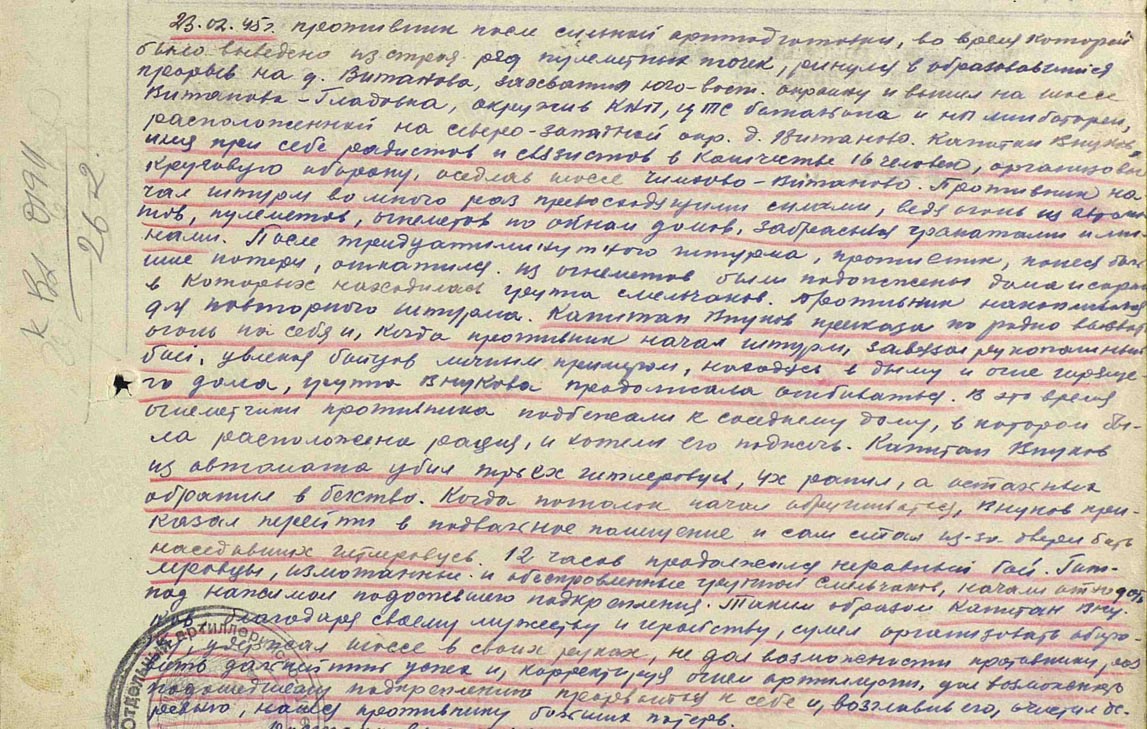 23.02.45г. противник после сильной артподготовки, во время которой
было выведено из строя ряд пулеметных точек, ринулся в образовавшийся
прорыв на д. Витанова, захватил юго-вост. окраину и вышел на шоссе
Витанова-Гладовка, окружив КНП, ЦТС батальона и
расположенной на северо-западной окр. д. Витаново. Капитан Внуков,
имея при себе радистов и связистов в количестве 16 человек, организовал
круговую оборону, оседлав шоссе Чимхово-Витаново. Противник на-
чал штурм во много раз превосходящими силами, ведя огонь из автома-
тов, пулеметов, огнеметов по окнам домов, забрасывая гранатами и ми-
нами. После тридцатиминутного штурма, противник, понеся боль-
шие потери, откатился. Из огнеметов были подожжены дома и сараи
в которых находилась группа смельчаков. Противник накопился
для повторного штурма. Капитан Внуков приказал по радио вызвать
огонь на себя и, когда противник начал штурм, завязал рукопашный
бой, увлекая бойцов личным примером, находясь в дыму и огне горяще-
го дома, группа Внукова продолжала отбиваться. В это время
огнеметчики противника подбежали к соседнему дому, в которой бы-
ла расположена рация, и хотели его поджечь. Капитан Внуков
из автомата убил трех гитлеровцев, 4х ранил, а остальных
обратил в бегство. Когда потолок начал обрушиваться, Внуков при-
казал перейти в подвальное помещение и сам стал из-за двери бить
наседавших гитлеровцев. 12 часов продолжался неравный бой. Гит-
леровцы, измотанные и обескровленные группой смельчаков, начали отход
под нажимом подошедшего подкрепления. Таким образом капитан Вну-
ков, благодаря своему мужеству и геройству, сумел организовать оборо-
ну, удержал шоссе в своих руках, не дал возможности противнику раз-
вить дальнейший успех и, корректируя огнем артиллерии, дал возможность
подошедшему подкреплению прорваться к себе и, возглавив его, очистил де-
ревню, нанеся противнику больших потерь.
к Вх. 0194
26 2.
Отдельный артиллерийс